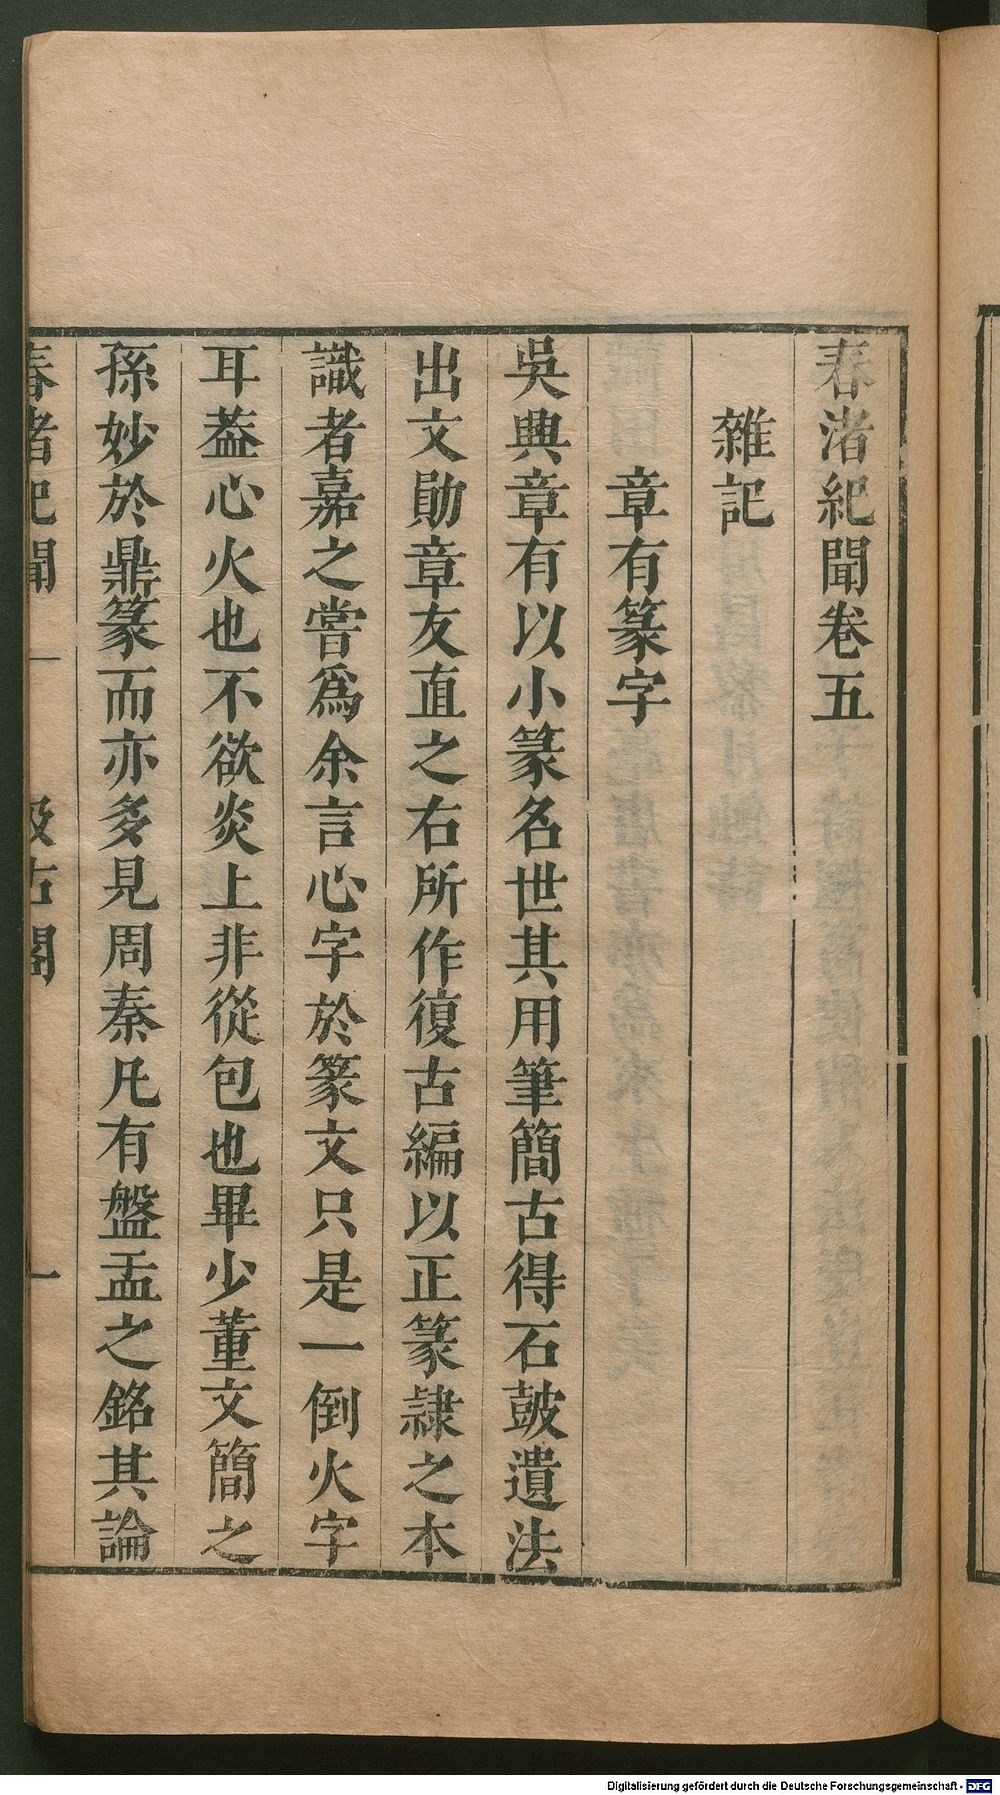 春渚紀聞卷五
雜記
章有篆字
吳興章有以小篆名世其用筆簡古得石皷遺法
出文勛章友直之右所作復古編以正篆隷之本
識者嘉之嘗爲余言心字於篆文只是一倒火字
耳葢心火也不欲炎上非從包也畢少董文簡之
孫妙於鼎篆而亦多見周秦凢有盤盂之銘其論
春渚紀聞 一 汲古閣 一
Digitalisierung gefördert durch die Deutsche Forschungsgemeinschaft - DFG